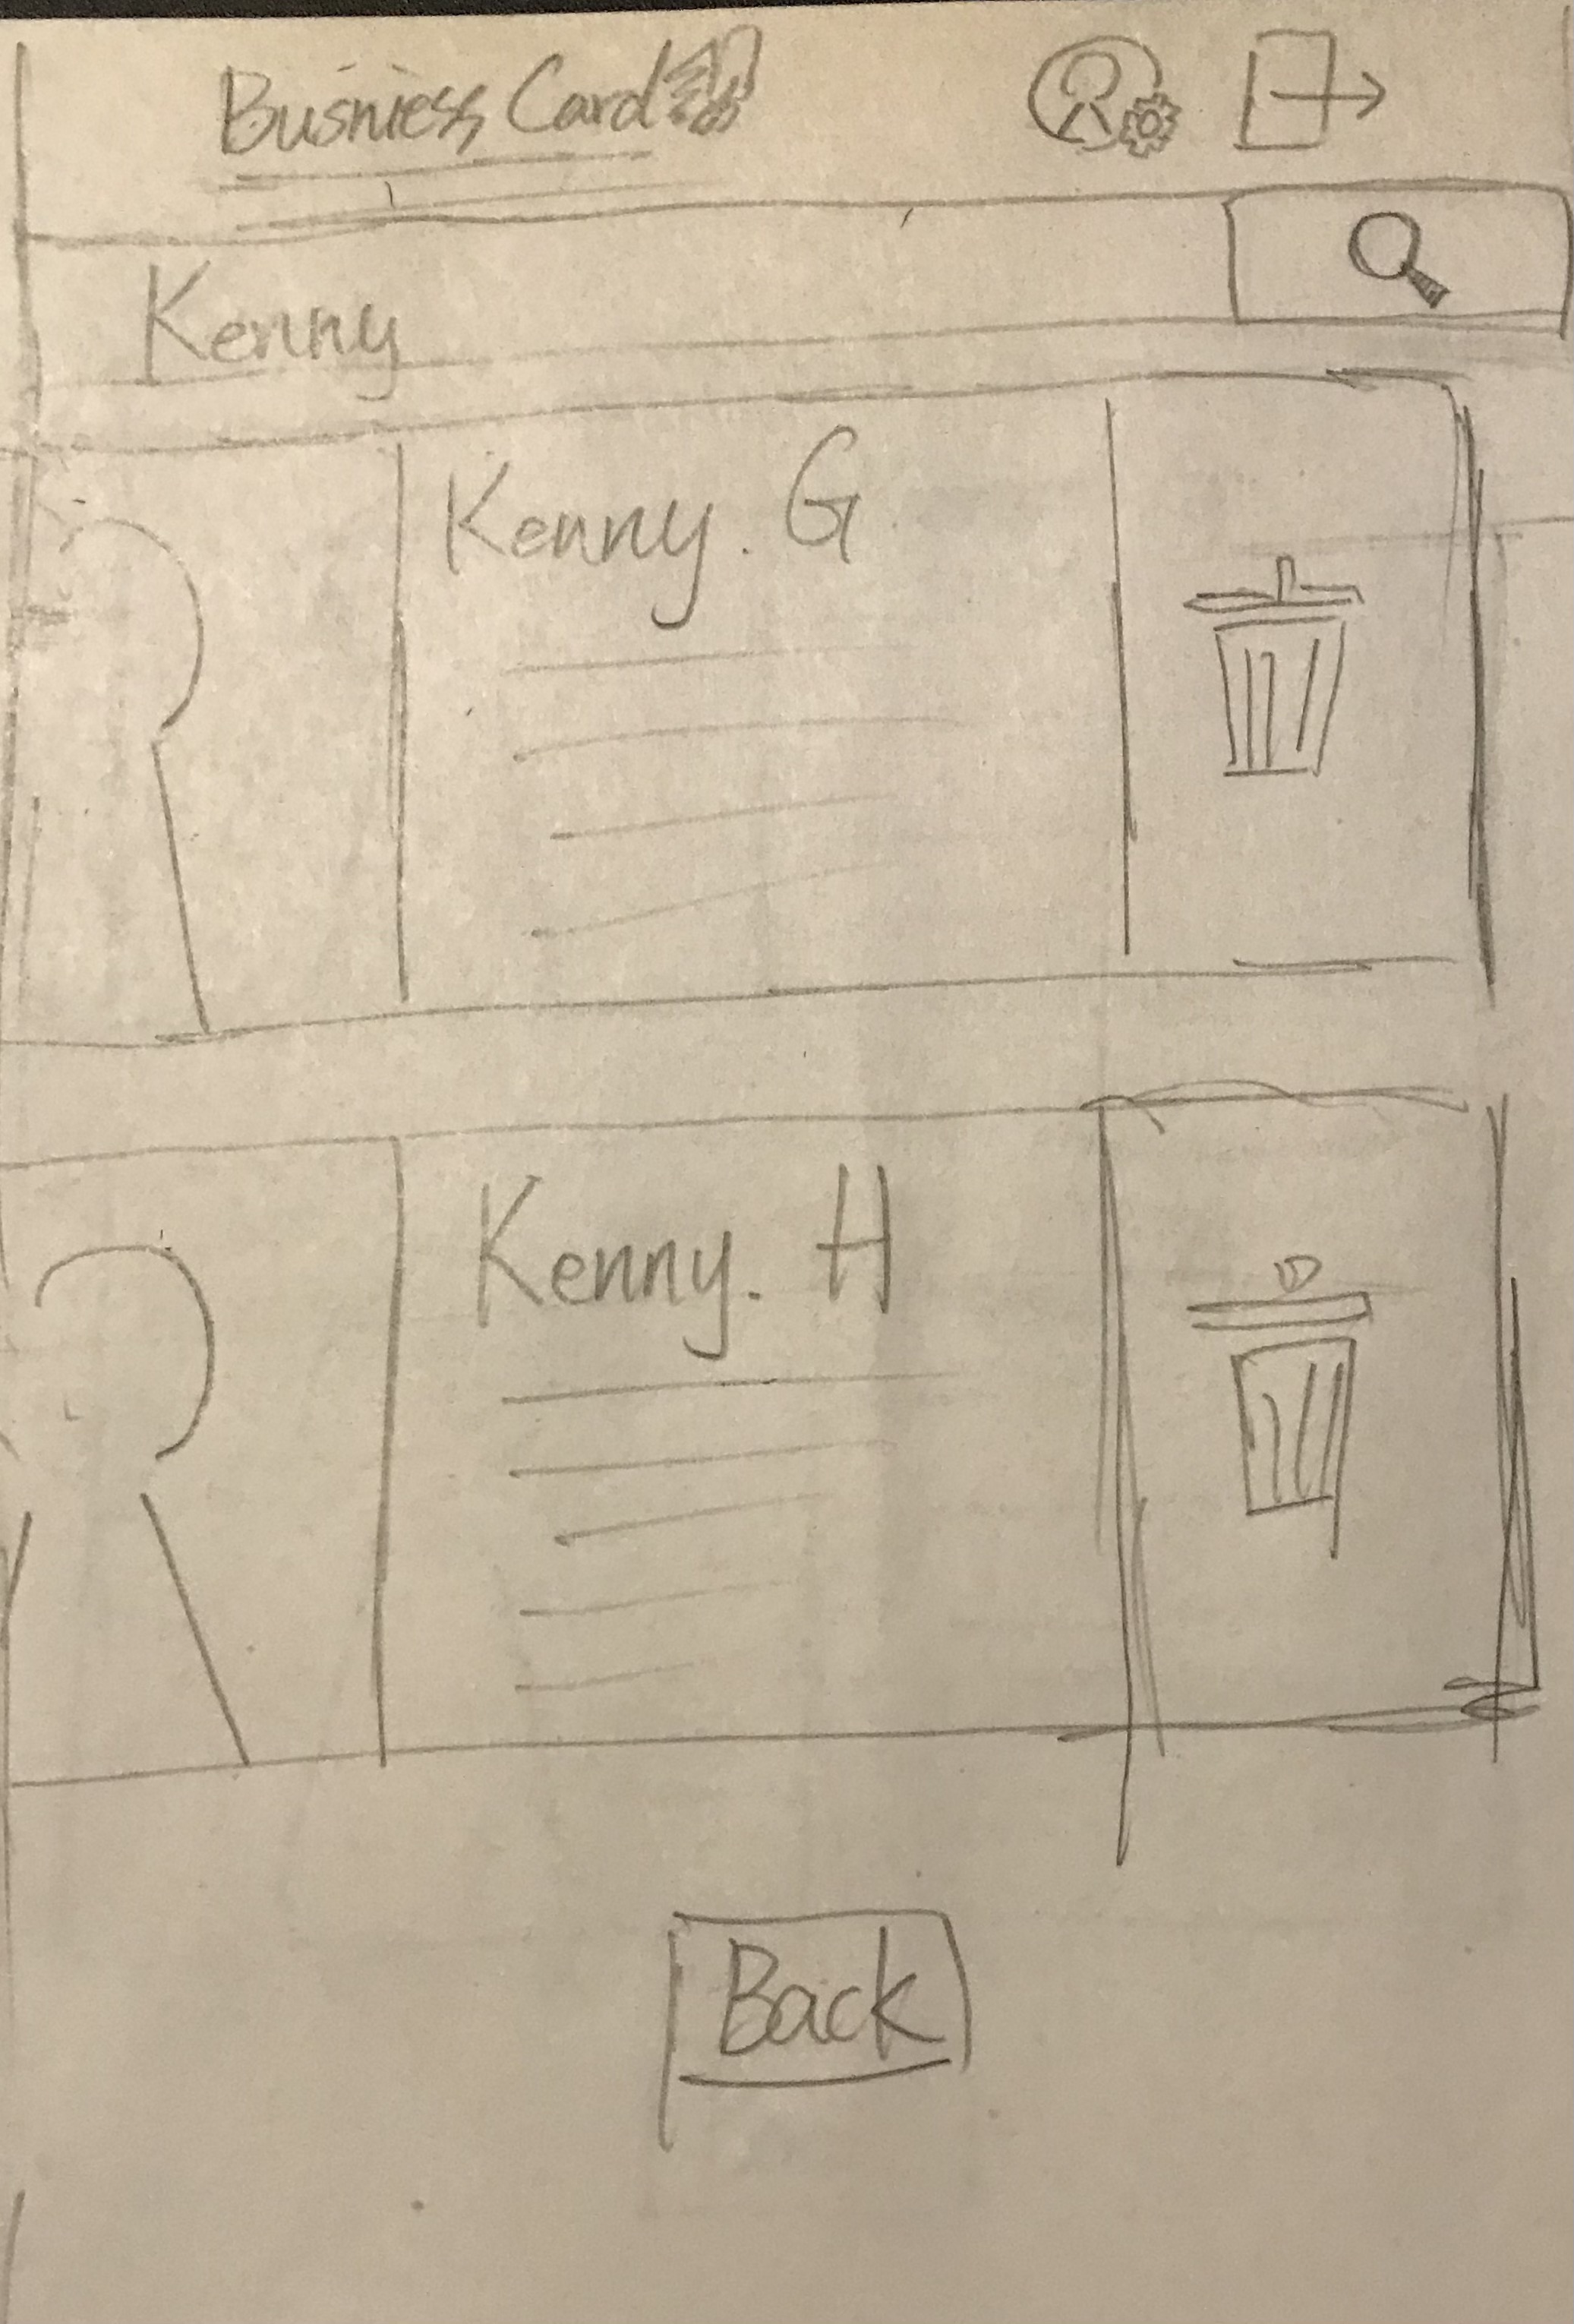 Busniess Card
Kenny
Kenny. G
Kenny. H
Back